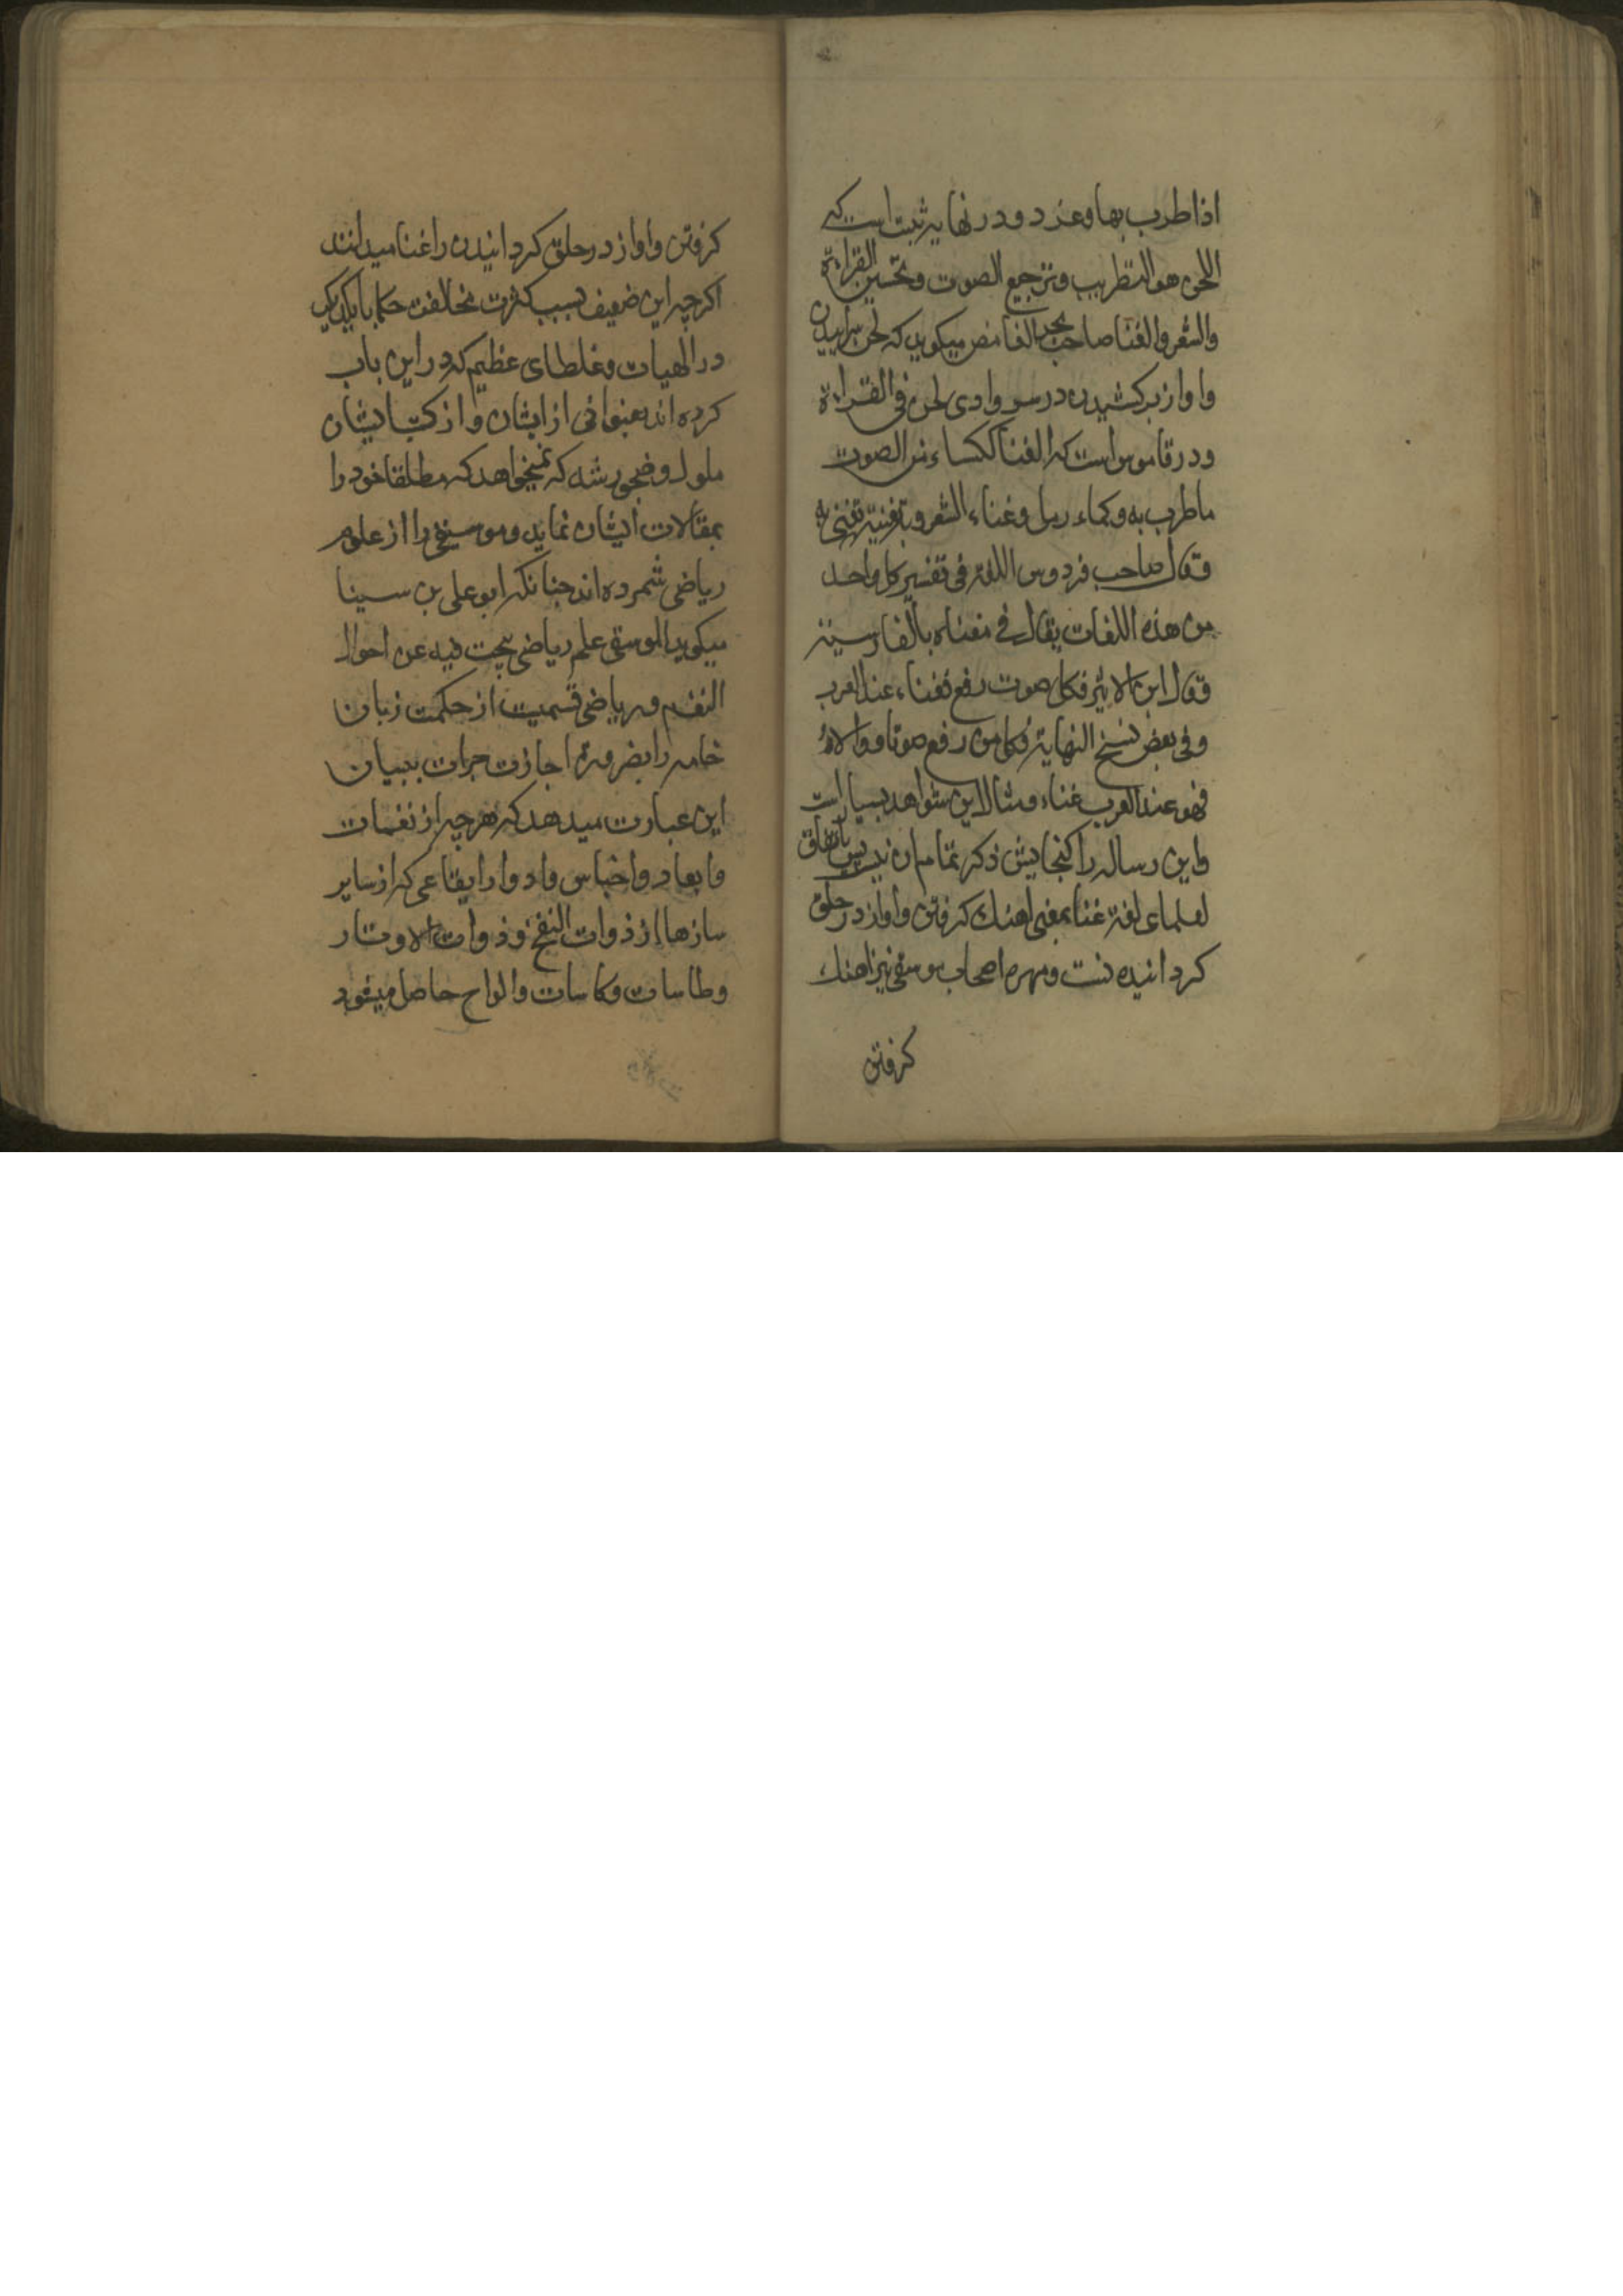 اذا طرب بها وغرد و در نهایه ثبت است که
اللحن هو التطریب وترجیع الصوت وتحسین القراءة
والشعر والغنا صاحب میکوید که لحن سراییدن
واواز برکشیدن در سرود لحن فی القراءة
ودر قاموس است که الغنا ککساء من الصوت
ما طرب به وکماء رمل وغناء الشعر وبه تغنیة تغنی به
وقال صاحب فردوس اللغة فی تفسیر کل واحد
من هذه اللغات یقال فی معناه بالفارسیة
وقال ابن الاثیر فکل صوت رفع فغناء عند العرب
وفی بعض نسخ النهایة فکل من رفع صوتا ووالاه
فهو عند العرب غناء ومثال این شواهد بسیار است
واین رساله را کنجایش ذکر تمام ان نیست پس باتفاق
لعلمای لغة غنا بمعنی اهنک کرفتن واواز در حلق
کردانیدنست ومهره اصحاب موسقی نیز اهنک
کرفتن
کرفتن واواز در حلق کردانیدن را غنا میدانند
اکرچه این ضعیف بسبب کثرت مخالفت حکما با یکدیکر
در الهیات وغلطای عظیم که در این باب
کرده اند بعنوانی از ایشان واز کتب ایشان
ملول وضجور شده که نمیخواهد که مطلقا خود را
بمقالات ایشان نماید وموسیقی را از علوم
ریاضی شمرده اند جنانکه ابو علی بن سینا
میکوید الموسقی علم ریاضی یبحث فیه عن احوال
النغم وریاضی قسمیت از حکمت زبان
خامه را بضرورة اجازت جرات ببیان
این عبارت میدهد که هرچه از نغمات
وابعاد واجناس وادوار ایقاعی که از سایر
سازها از ذوات النفخ وذوات الاوتار
وطاسات وکاسات والواح حاصل میشود